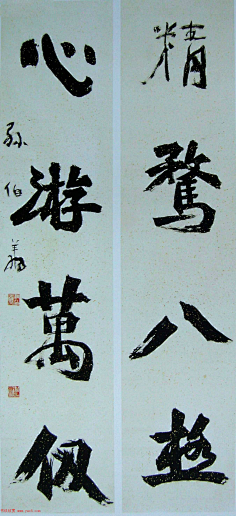 精鹜八极
心游萬仞
孫伯翔